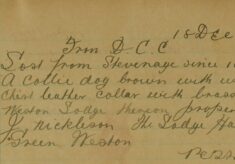 18 Dec
From D.C.C
Lost from Stevenage since 1
A collie dog brown with w
Chest leather collar with brass
Weston Lodge thereon proper
The Lodge Ha
Green Weston